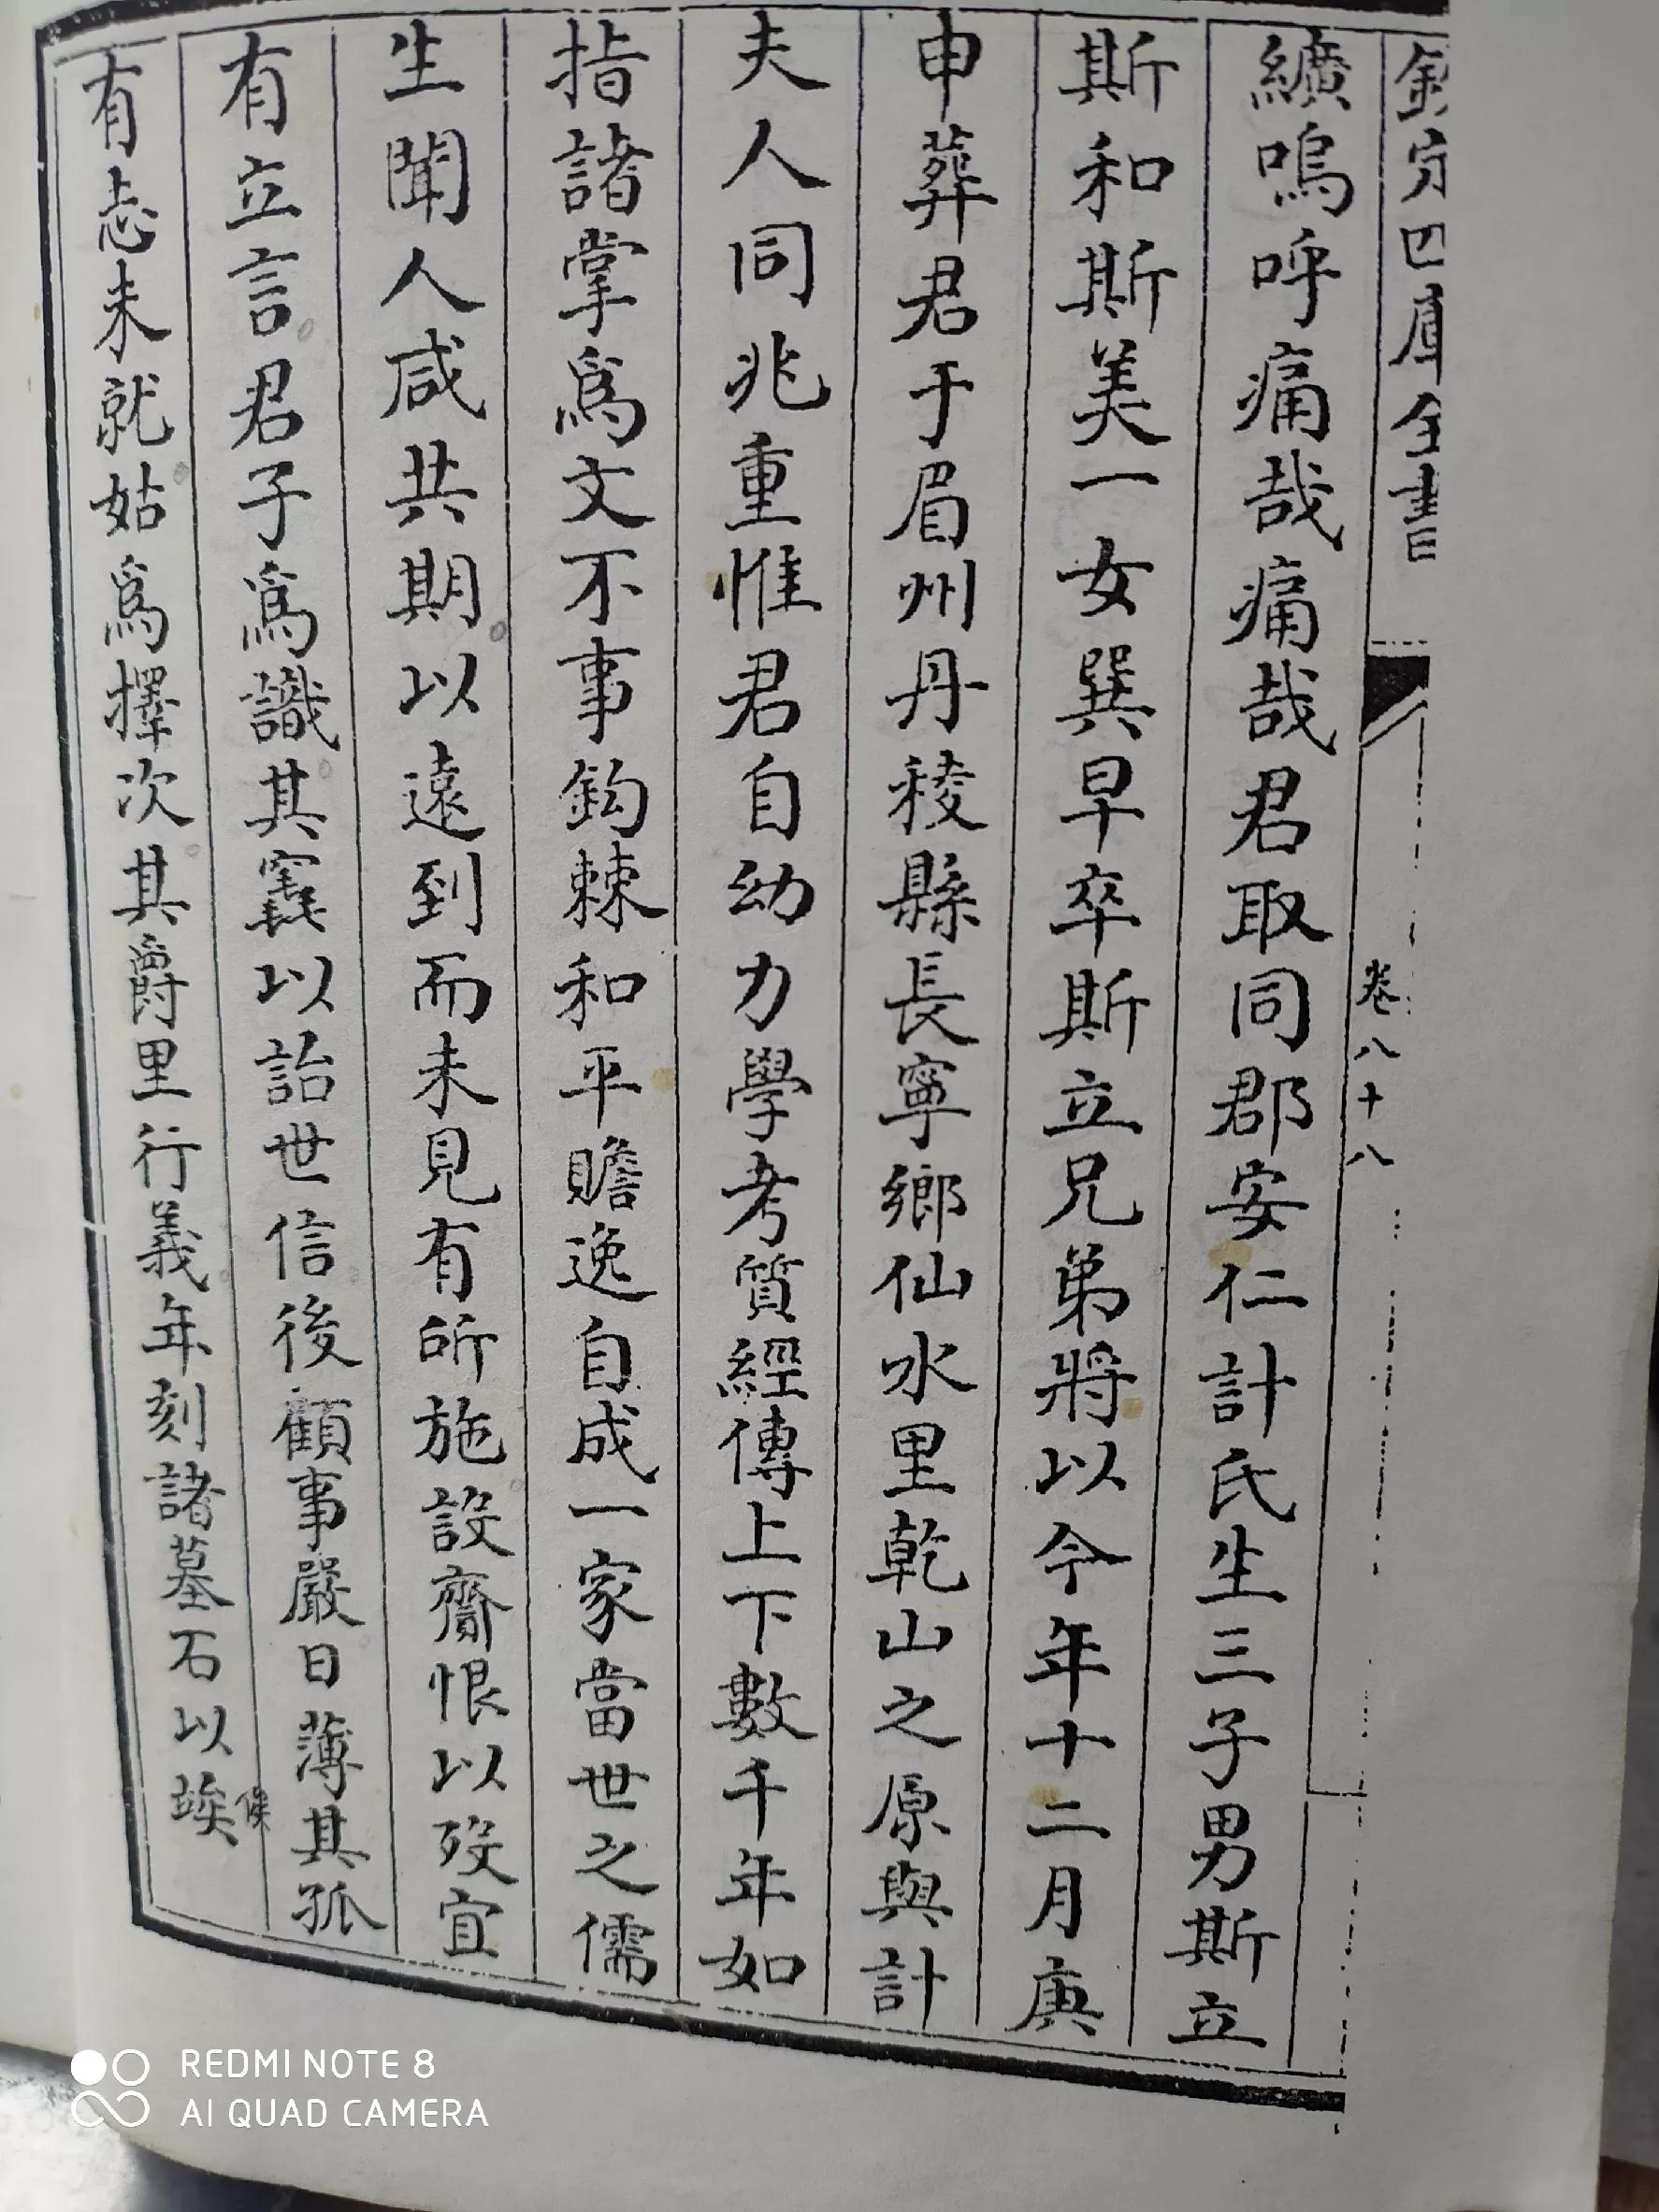 欽定四庫全書
卷八十八
纊嗚呼痛哉痛哉君取同郡安仁計氏生三子男斯立
斯和斯美一女巽早卒斯立兄弟將以今年十二月庚
申葬君于眉州丹稜縣長寧鄉仙水里乾山之原與計
夫人同兆重惟君自幼力學考質經傳上下數千年如
指諸掌爲文不事鈎棘和平贍逸自成一家當世之儒
生聞人咸共期以遠到而未見有所施設齎恨以歿宜
有立言君子爲識其窆以詒世信後顧事嚴日薄其孤
有志未就姑爲擇次其爵里行義年刻諸墓石以埃
俟
REDMI NOTE 8
AI QUAD CAMERA